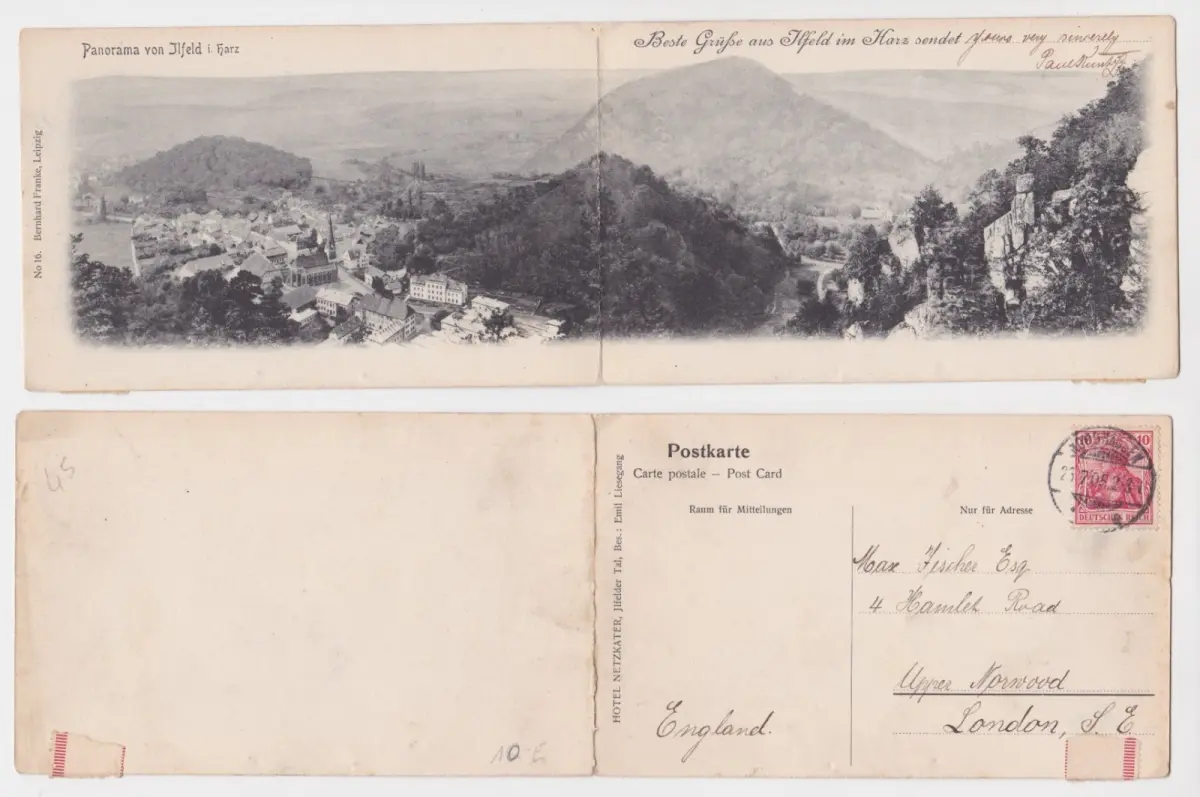 Panorama von Ilfeld i. Harz
Beste Grüße aus Ilfeld im Harz sendet yours very sincerely
Paul
No 16. Bernhard Franke, Leipzig
45
Postkarte
Carte postale – Post Card
Raum für Mitteilungen
Nur für Adresse
HOTEL NETZKATER, Ilfelder Tal, Bes.: Emil Liesegang
10
DEUTSCHES REICH
Max Fischer Esq
4 Hamlet Road
Upper Norwood
London, S. E.
England.
10 E